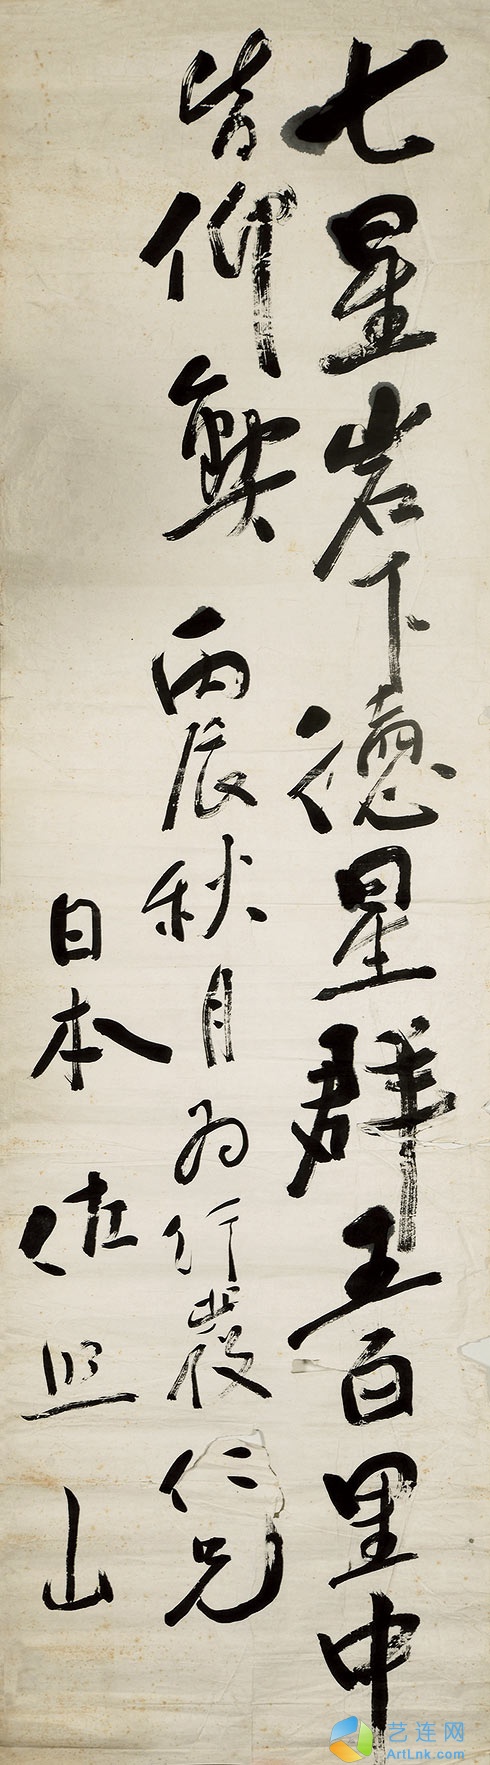 七星岩下德星群五百里中
皆仰 丙辰秋月为行嚴仁兄
日本 佐照山
艺连网
ArtLnk.com